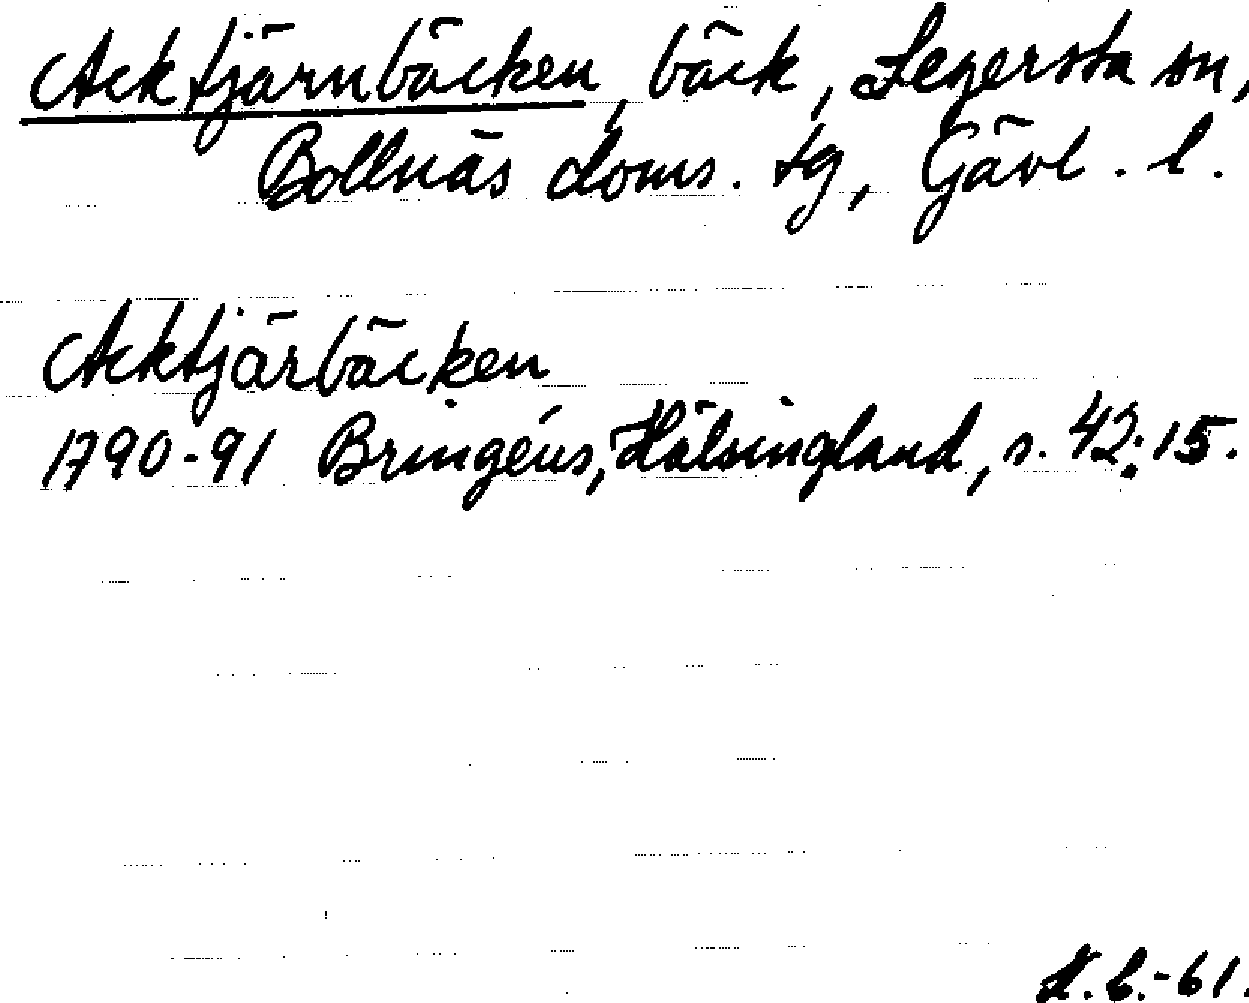 Acktjärnbäcken, bäck, Segersta sn,
Bollnäs doms. tg, Gävl. l.
Acktjärbäcken
1790-91 Bringéus, Hälsingland, s. 42:15.
H.b.-61.